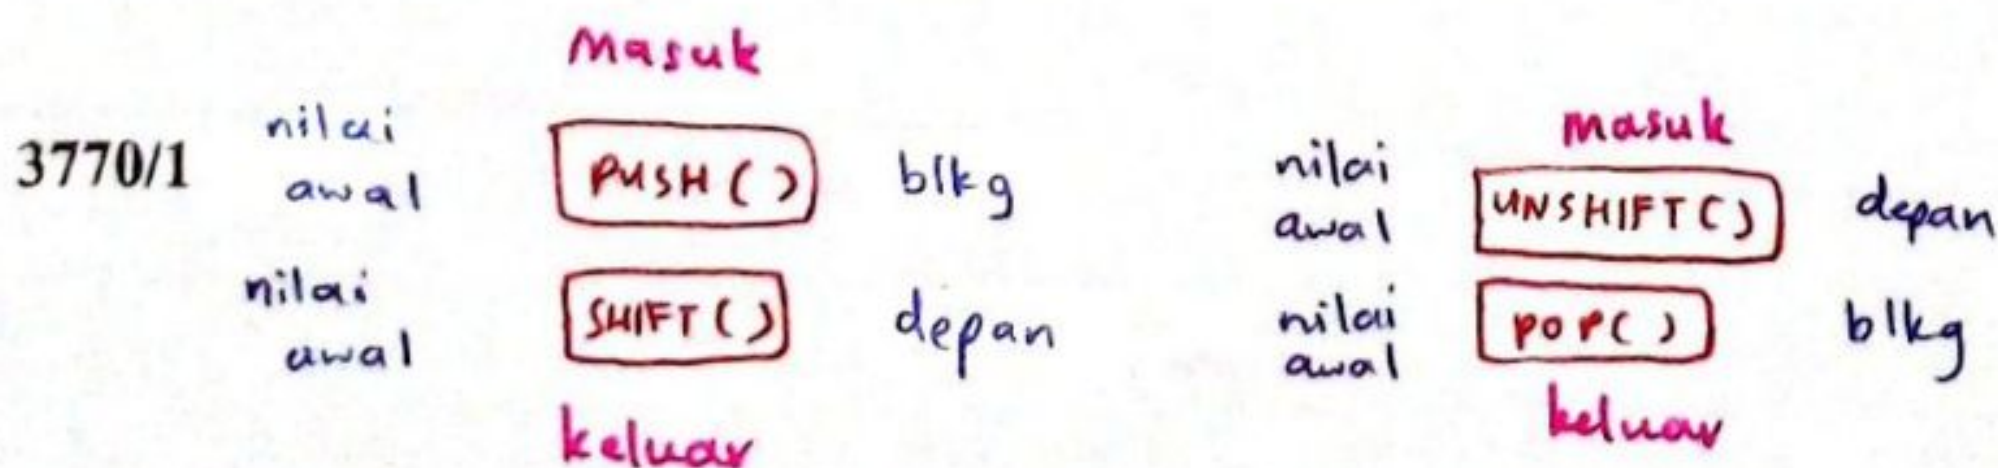 Masuk
3770/1 nilai awal PUSH() blkg
nilai awal SHIFT() depan
keluar
masuk
nilai awal UNSHIFT() depan
nilai awal POP() blkg
keluar